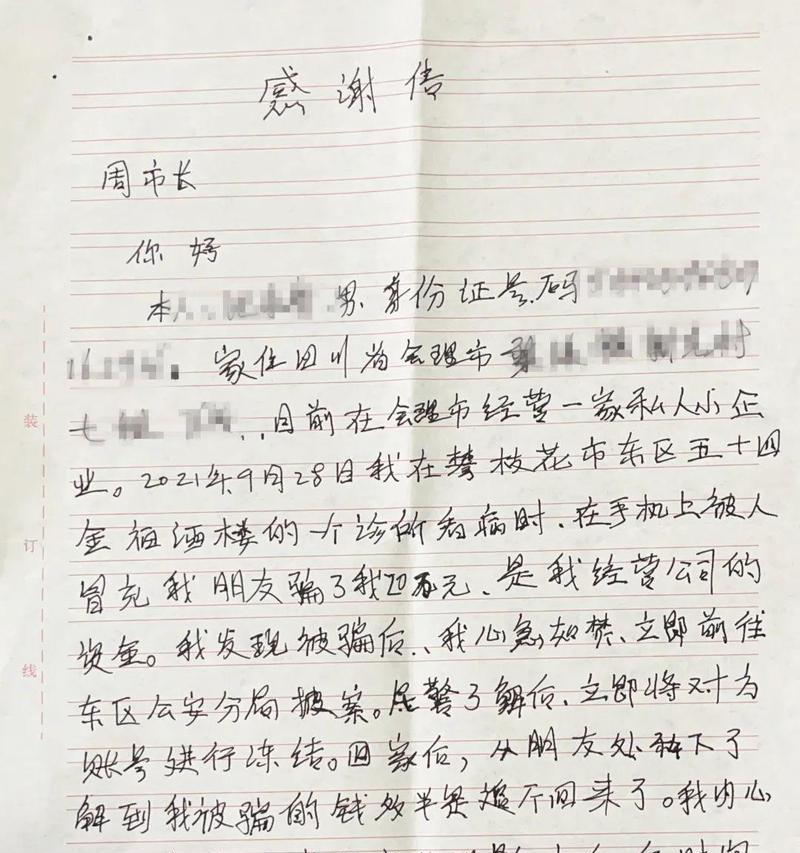 感谢信
周市长
你好
本人 男、身份证号码
家住四川省会理市 村
七 目前在会理市经营一家私人小企
业。2021年9月28日我在攀枝花市东区五十四
金福酒楼的一个诊所看病时、在手机上被人
冒充我朋友骗了我20万元、是我经营公司的
资金。我发现被骗后、我心急如焚、立即前往
东区公安分局报案。民警了解后、立即将对方
账号进行冻结。回家后,从朋友处 下了
解到我被骗的钱多半是追不回来了。我内心
装
订
线